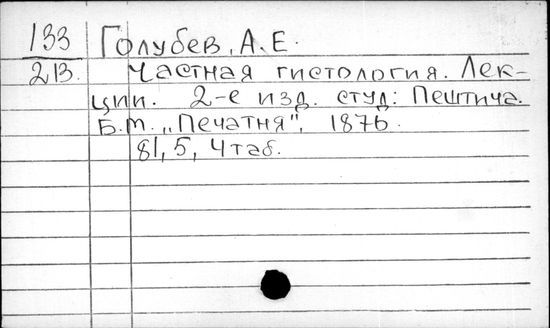 133 Голубев, А. Е.
213. Частная гистология. Лек-
ции. 2-е изд. студ: Пештича.
Б.м. „Печатня", 1876.
81, 5, 4 таб.